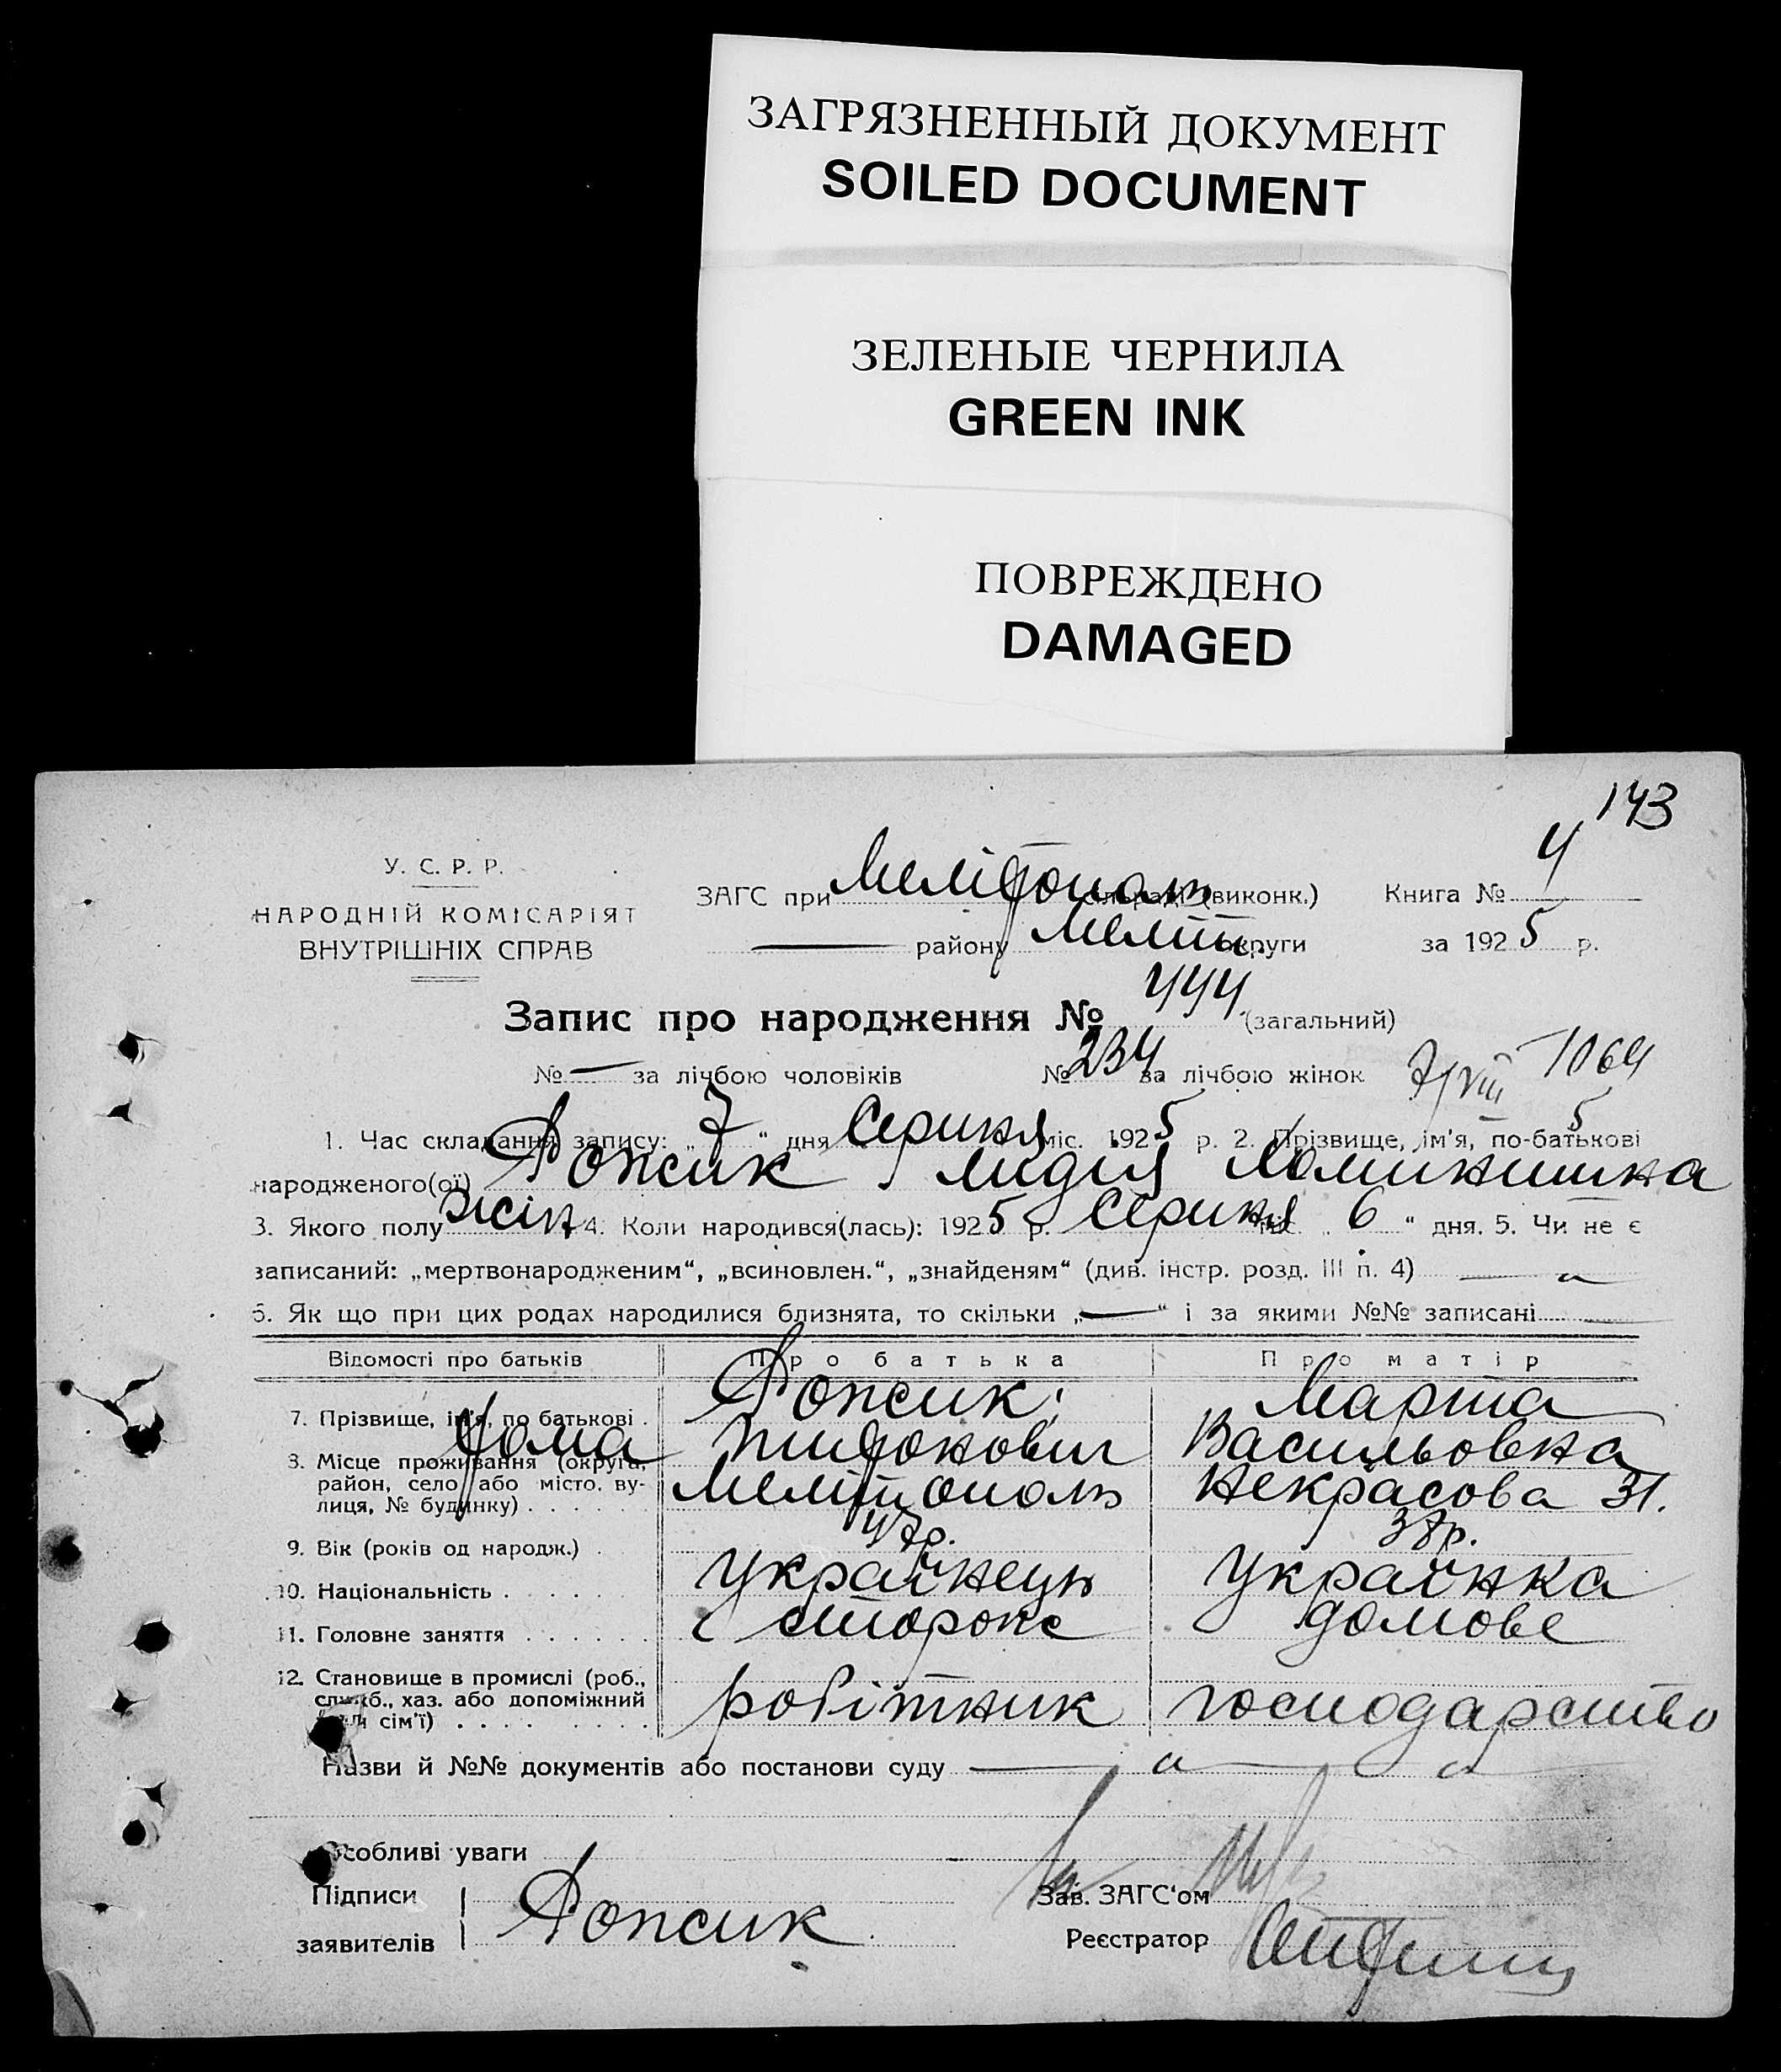 ЗАГРЯЗНЕННЫЙ ДОКУМЕНТ
SOILED DOCUMENT
ЗЕЛЕНЫЕ ЧЕРНИЛА
GREEN INK
ПОВРЕЖДЕНО
DAMAGED
143
У. С. Р. Р.
НАРОДНІЙ КОМІСАРІЯТ
ВНУТРІШНІХ СПРАВ
ЗАГС при Мелітополь сільраді (виконк.) Книга № 4
району Меліт. округи за 1925 р.
Запис про народження № 444 (загальний)
№ — за лічбою чоловіків № 234 за лічбою жінок 7/VIII 1064
1. Час складання запису: „7“ дня Серпня міс. 1925 р. 2. Прізвище, ім'я, по-батькові
народженого(ої) Лидия
3. Якого полу жін 4. Коли народився(лась): 1925 р. Серпня міс. „6“ дня. 5. Чи не є
записаний: „мертвонародженим“, „всиновлен.“, „знайденям“ (див. інстр. розд. III п. 4) —
6. Як що при цих родах народилися близнята, то скільки „—“ і за якими №№ записані —
Відомості про батьків Про батька Про матір
7. Прізвище, ім'я, по батькові Марта
Васильовна
8. Місце проживання (округа,
район, село або місто, ву-
лиця, № будинку) Мелітополь Некрасова 31.
9. Вік (років од народж.) 47р. 37р.
10. Національність українець українка
11. Головне заняття сторож домове
12. Становище в промислі (роб.,
служб., хаз. або допоміжний
член сім'ї) робітник господарство
Назви й №№ документів або постанови суду —
Особливі уваги
Підписи Зав. ЗАГС'ом
заявителів Реєстратор